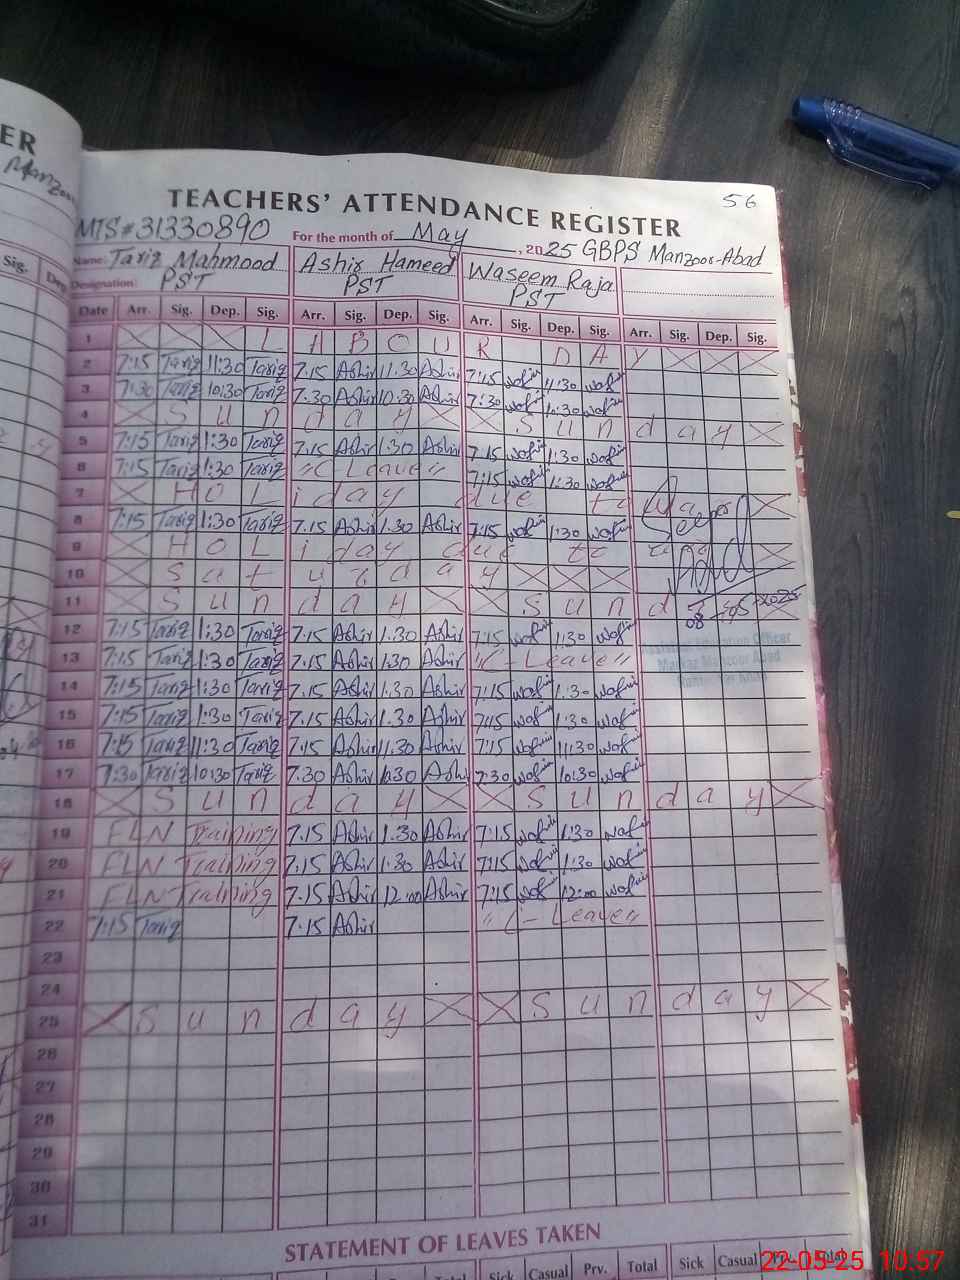 ER
Manzoor
Sig. Dep
56
TEACHERS' ATTENDANCE REGISTER
MIS#31330890 For the month of May, 2025 GBPS Manzoor-Abad
Name: Tariq Mahmood Ashir Hameed Waseem Raja
Designation: PST PST PST
Date Arr. Sig. Dep. Sig. Arr. Sig. Dep. Sig. Arr. Sig. Dep. Sig. Arr. Sig. Dep. Sig.
1 L A B O U R D A Y
2 7:15 Tariq 11:30 Tariq 7.15 Ashir 11.30 Ashir 7:15 11:30
3 7:30 Tariq 10:30 Tariq 7.30 Ashir 10.30 Ashir 7:30 10:30
4 S u n d a y S u n d a y
5 7:15 Tariq 1:30 Tariq 7.15 Ashir 1.30 Ashir 7.15 1:30
6 7:15 Tariq 1:30 Tariq "C Leave" 7:15 1:30
7 H o L i day due to War
8 7:15 Tariq 1:30 Tariq 7.15 Ashir 1.30 Ashir 7:15 1:30
9 H o L i day due to
10 S a t u r d a y
11 S u n d a y S u n d
12 7:15 Tariq 1:30 Tariq 7.15 Ashir 1.30 Ashir 7:15 1:30
13 7:15 Tariq 1:30 Tariq 7.15 Ashir 1:30 Ashir "C-Leave"
Assistant Education Officer
Markaz Manzoor Abad
14 7:15 Tariq 1:30 Tariq 7.15 Ashir 1.30 Ashir 7:15 1:30
15 7:15 Tariq 1:30 Tariq 7.15 Ashir 1.30 Ashir 7:15 1:30
16 7:15 Tariq 11:30 Tariq 7.15 Ashir 11.30 Ashir 7:15 11:30
17 7:30 Tariq 10:30 Tariq 7.30 Ashir 10:30 Ashir 7:30 10:30
18 S u n d a y S u n d a y
19 FLN Training 7.15 Ashir 1.30 Ashir 7:15 1:30
20 FLN Training 7.15 Ashir 1:30 Ashir 7:15 1:30
21 FLN Training 7.15 Ashir 12:00 Ashir 7:15 12:00
22 7:15 Tariq 7.15 Ashir "C-Leave"
23
24
25 S u n d a y S u n d a y
26
27
28
29
30
31
STATEMENT OF LEAVES TAKEN
Total Sick Casual Prv. Total Sick Casual Prv. Total
22-05-25 10:57